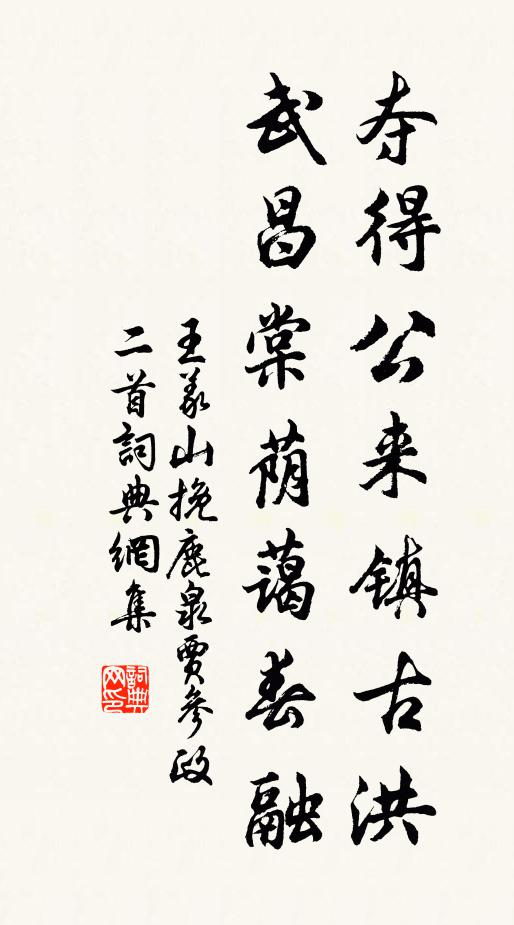 夺得公来镇古洪
武昌棠荫蔼春融
王义山挽鹿泉贾参政
二首詞典網集
詞典網印